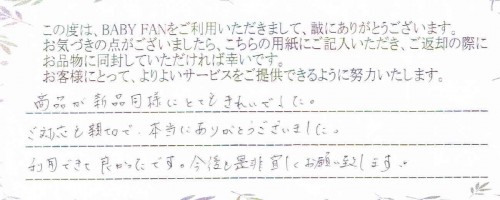 この度は、BABY FANをご利用いただきまして、誠にありがとうございます。
お気づきの点がございましたら、こちらの用紙にご記入いただき、ご返却の際に
お品物に同封していただければ幸いです。
お客様にとって、よりよいサービスをご提供できるように努力いたします。
商品が新品同様にとてもきれいでした。
ご対応も親切で、本当にありがとうございました。
利用できて良かったです。今後も是非宜しくお願い致します。